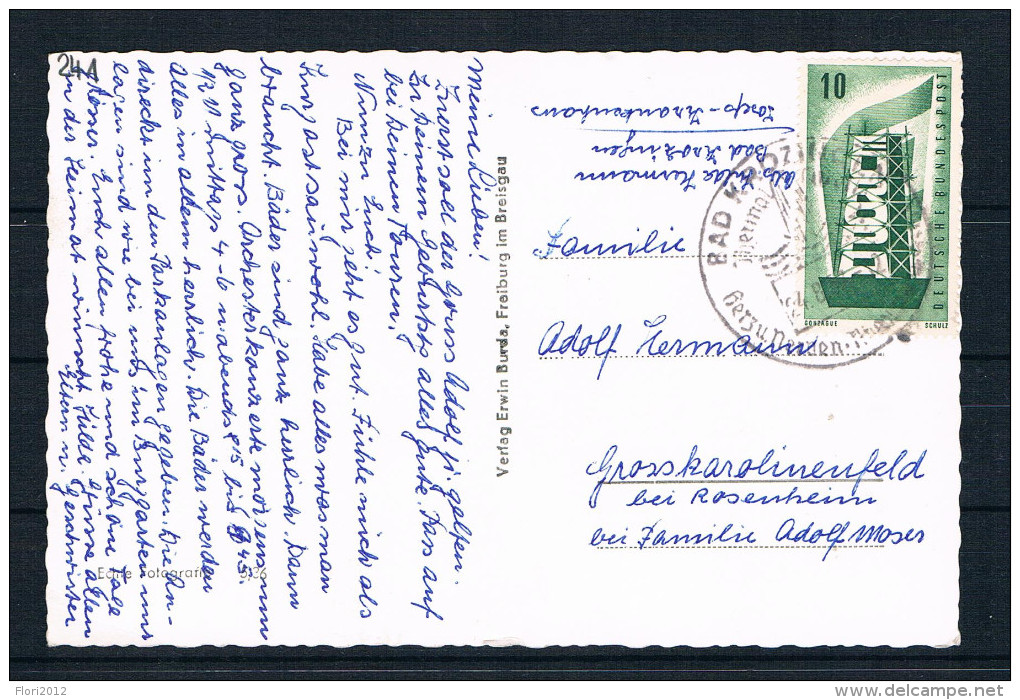 241
Meine Lieben!
Zuerst soll der gross Adolf ji gelten
Zu seinem Geburtstg alles Gute. Pass auf
bei deinen Touren.
Nun zu Euch!
Bei mir geht es gut. Fühle mich als
Kurgast sauwohl. Habe alles was man
braucht. Bäder sind ganz herrlich. Dann
ganz gross. Orchesterkonzerte morgens um
1/2 11 Mittags 4-6 u. abends 8 15 bis 45.
Alles in allem herrlich. Die Bäder werden
direckt in den Parkanlagen gegeben. Die An-
lagen sind wie bei uns im Burggarten um
Meran. Euch allen frohe und schöne Tage
in der Heimat wünscht Hilde. Grüsse allen
Eltern u. Geschwister
Echte Fotografie 5136
Verlag Erwin Burda, Freiburg im Breisgau
Abs Hilda Hermann
Bad Krozingen
Josefs-Krankenhaus
10
DEUTSCHE BUNDESPOST
GONZAGUE SCHULZ
BAD KROZINGEN
Thermal
Herz u.
Familie
Adolf Hermann
Grosskarolinenfeld
bei Rosenheim
bei Familie Adolf Moser
Flori2012
www.delcampe.net